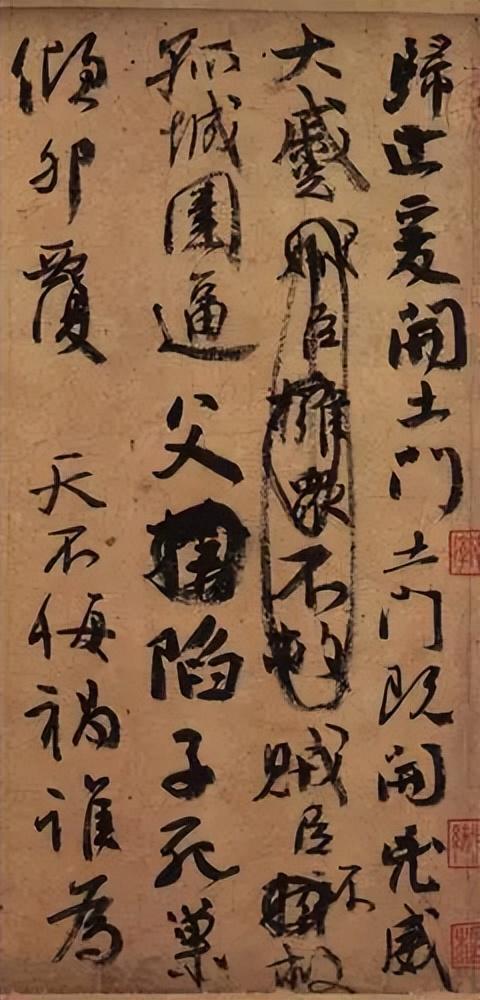 歸止爰開土門土門既開凶威
大蹙賊臣擁衆不救賊臣不救
孤城圍逼父陷子死巢
傾卵覆 天不悔禍誰為